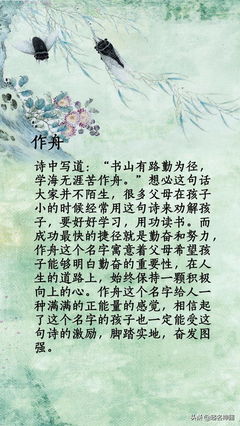 作舟
诗中写道：“书山有路勤为径，
学海无涯苦作舟。”想必这句话
大家并不陌生，很多父母在孩子
小的时候经常用这句诗来劝解孩
子，要好好学习，用功读书。而
成功最快的捷径就是勤奋和努力，
作舟这个名字寓意着父母希望孩
子能够明白勤奋的重要性，在人
生的道路上，始终保持一颗积极
向上的心。作舟这个名字给人一
种满满的正能量的感觉，相信起
了这个名字的孩子也一定能受这
句诗的激励，脚踏实地，奋发图
强。